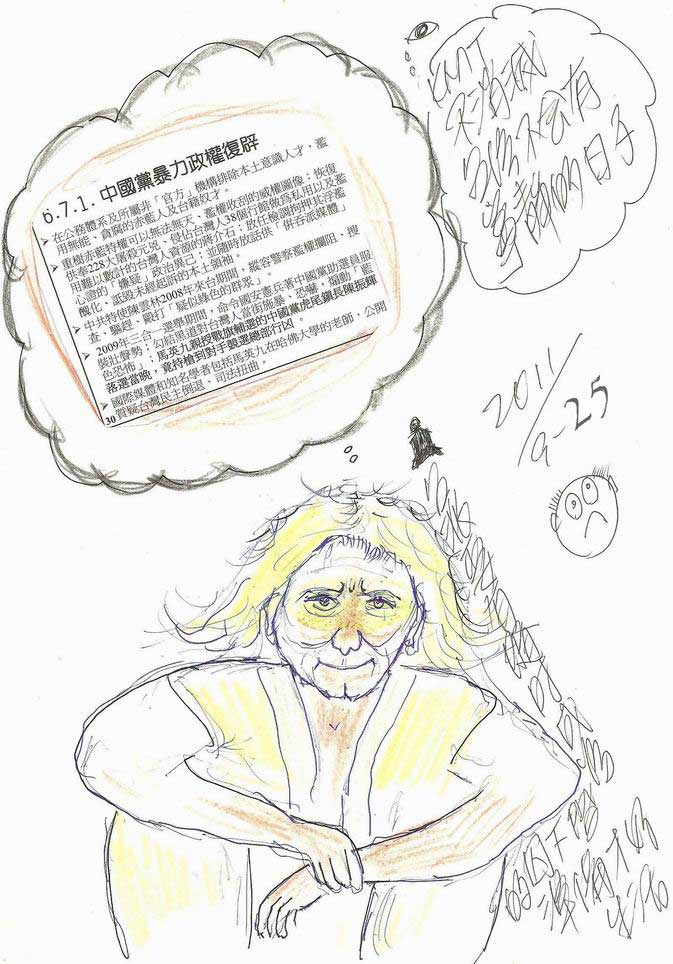 6.7.1. 中國黨暴力政權復辟
➢ 在公務體系及所屬非「官方」機構排除本土意識人才，濫
用無能、貪腐的赤藍人及台籍奴才。
➢ 重樹赤藍特權可以無法無天、濫權收刮的威權圖像；恢復
供奉228大屠殺元兇、侵佔台灣人38個行館做為私用以及濫
用難以數計的台灣人資源的蔣介石；放任檢調擅用其浮濫
心證的「嫌疑」政治異己；並隨時放話供「併吞派媒體」
醜化、詆毀未經起訴的本土領袖。
➢ 中共特使陳雲林2008年來台期間，縱容警察濫權攔阻、搜
查、驅趕、毆打「疑似綠色的群眾」。
➢ 2009年三合一選舉期間，命令國安憲兵著中國黨助選員服
裝壯聲勢；勾結黑道對台灣人當街施暴、恐嚇，煽動「藍
色恐怖」；馬英九親授戰旗輔選的中國黨虎尾鎮長陳振輝
落選當晚，竟持槍到對手競選總部行凶。
➢ 國際媒體和知名學者包括馬英九在哈佛大學的老師，公開
質疑台灣民主倒退、司法扭曲。
30
KMT
不消滅
台灣不會有
寧靜的日子
2011
9-25